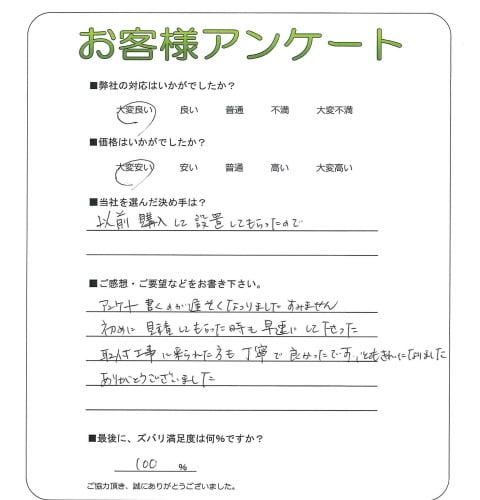 お客様アンケート
■弊社の対応はいかがでしたか？
大変良い 良い 普通 不満 大変不満
■価格はいかがでしたか？
大変安い 安い 普通 高い 大変高い
■当社を選んだ決め手は？
以前購入して設置してもらったので
■ご感想・ご要望などをお書き下さい。
アンケート書くのが遅くなりました すみません
初めに見積してもらった時も早速にして下さった
取付工事に来られた方も丁寧で良かったです。になりました
ありがとうございました
■最後に、ズバリ満足度は何％ですか？
100 ％
ご協力頂き、誠にありがとうございました。